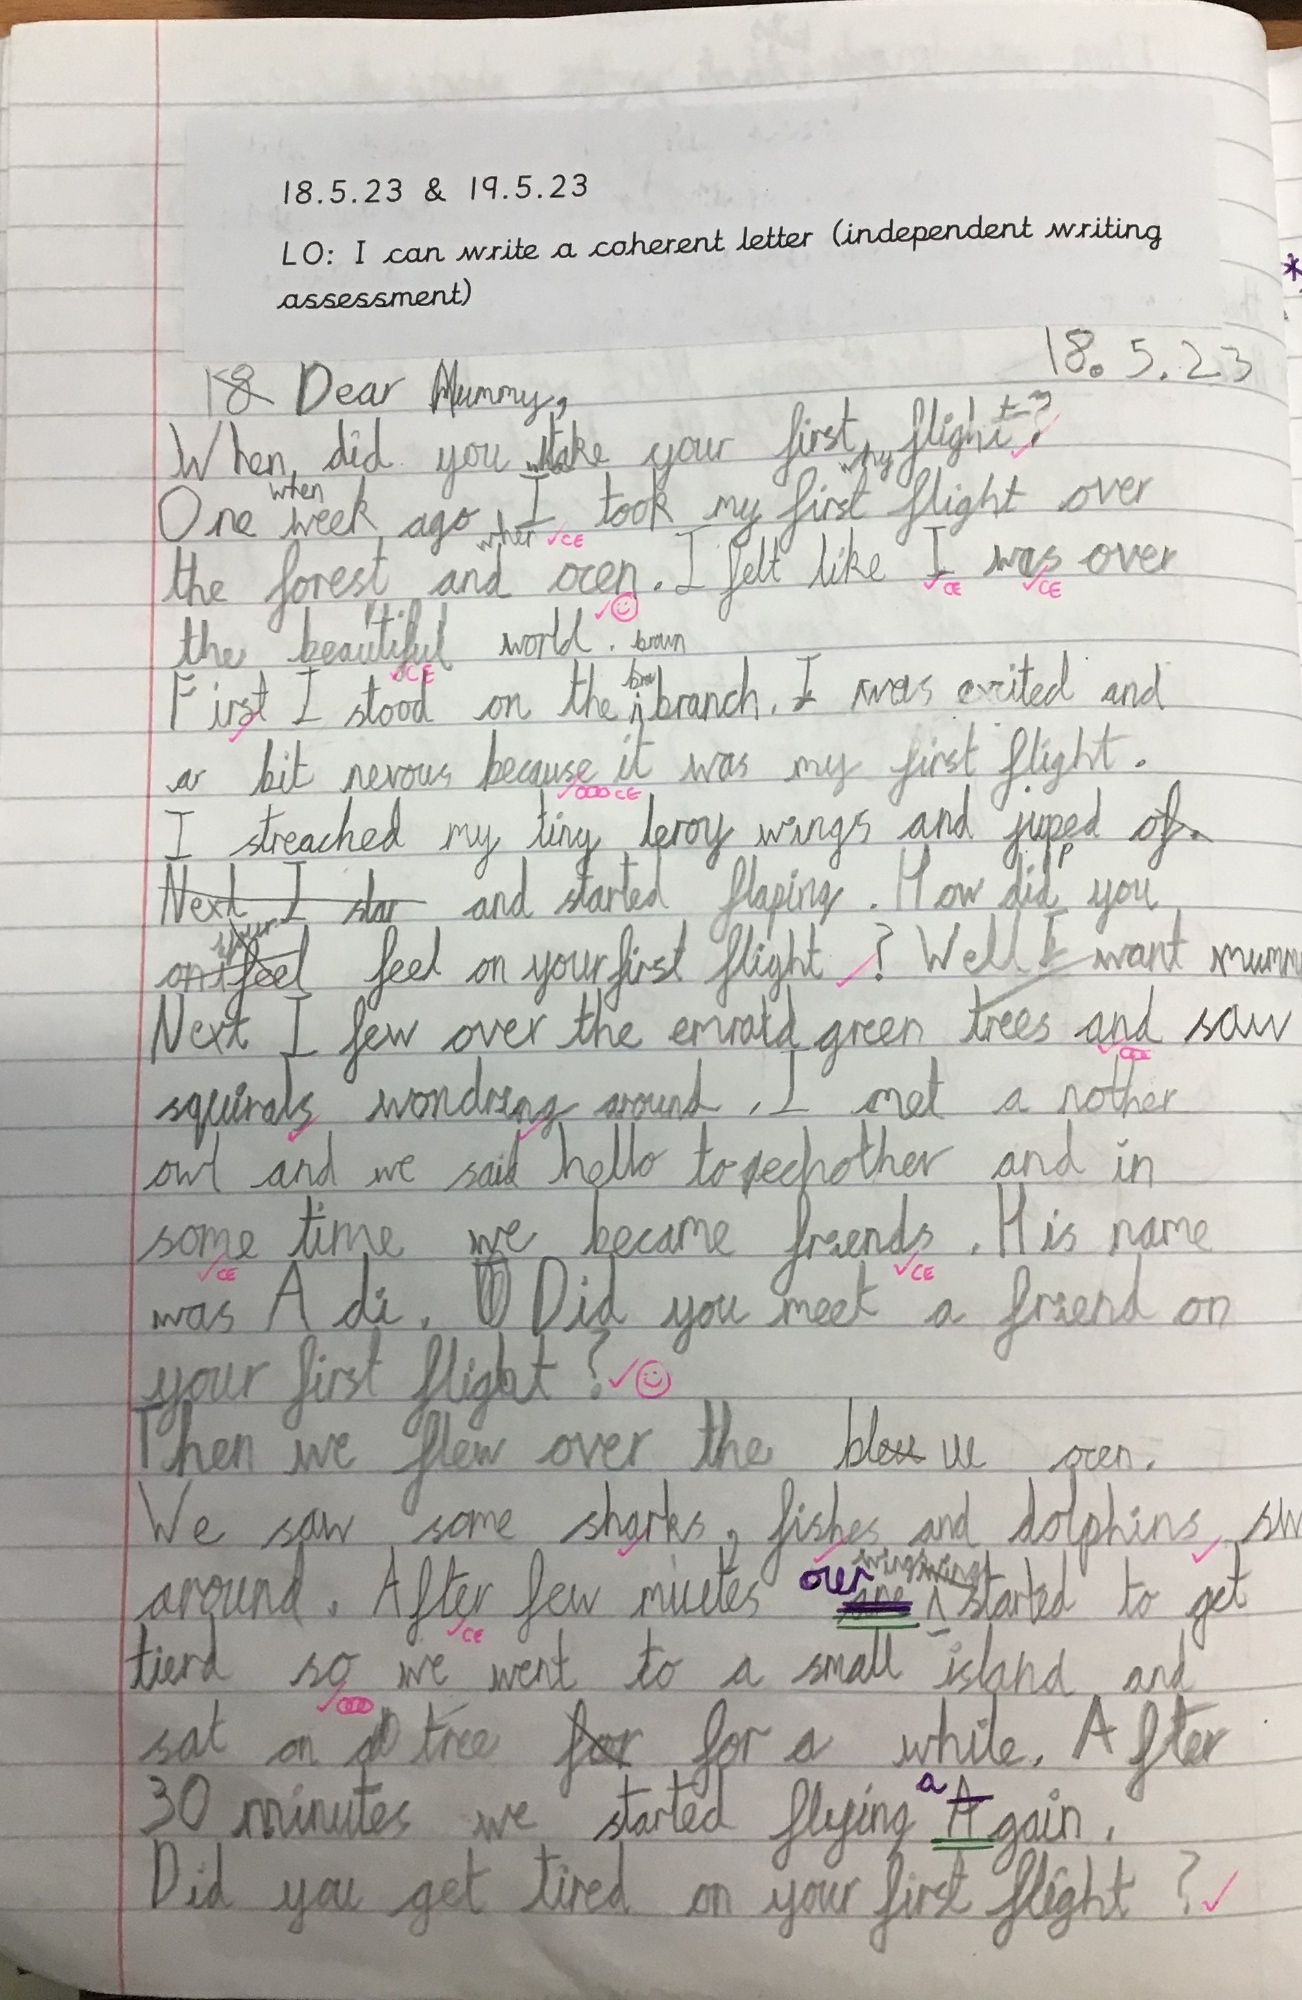 18.5.23 & 19.5.23
LO: I can write a coherent letter (independent writing
assessment)
18.5.23
18 Dear Mummy,
When did you take your first flight?
One week ago, I took my first flight over
the forest and ocen. I felt like I was over
the beautiful world.
First I stood on the brown branch. I was exited and
a bit nevous because it was my first flight.
I streached my tiny leroy wings and juped of.
Next I star and started flaping. How did you
feel feel on your first flight? Well I want mumm
Next I few over the emrald green trees and saw
squirals wondring around. I met a nother
owl and we said hello to echother and in
some time we became friends. His name
was Adi. Did you meet a friend on
your first flight?
Then we flew over the blue ocen.
We saw some sharks, fishes and dolphins sw
around. After few miutes our wings started to get
tierd so we went to a small island and
sat on a tree for for a while. After
30 minutes we started flying a Again.
Did you get tired on your first flight?